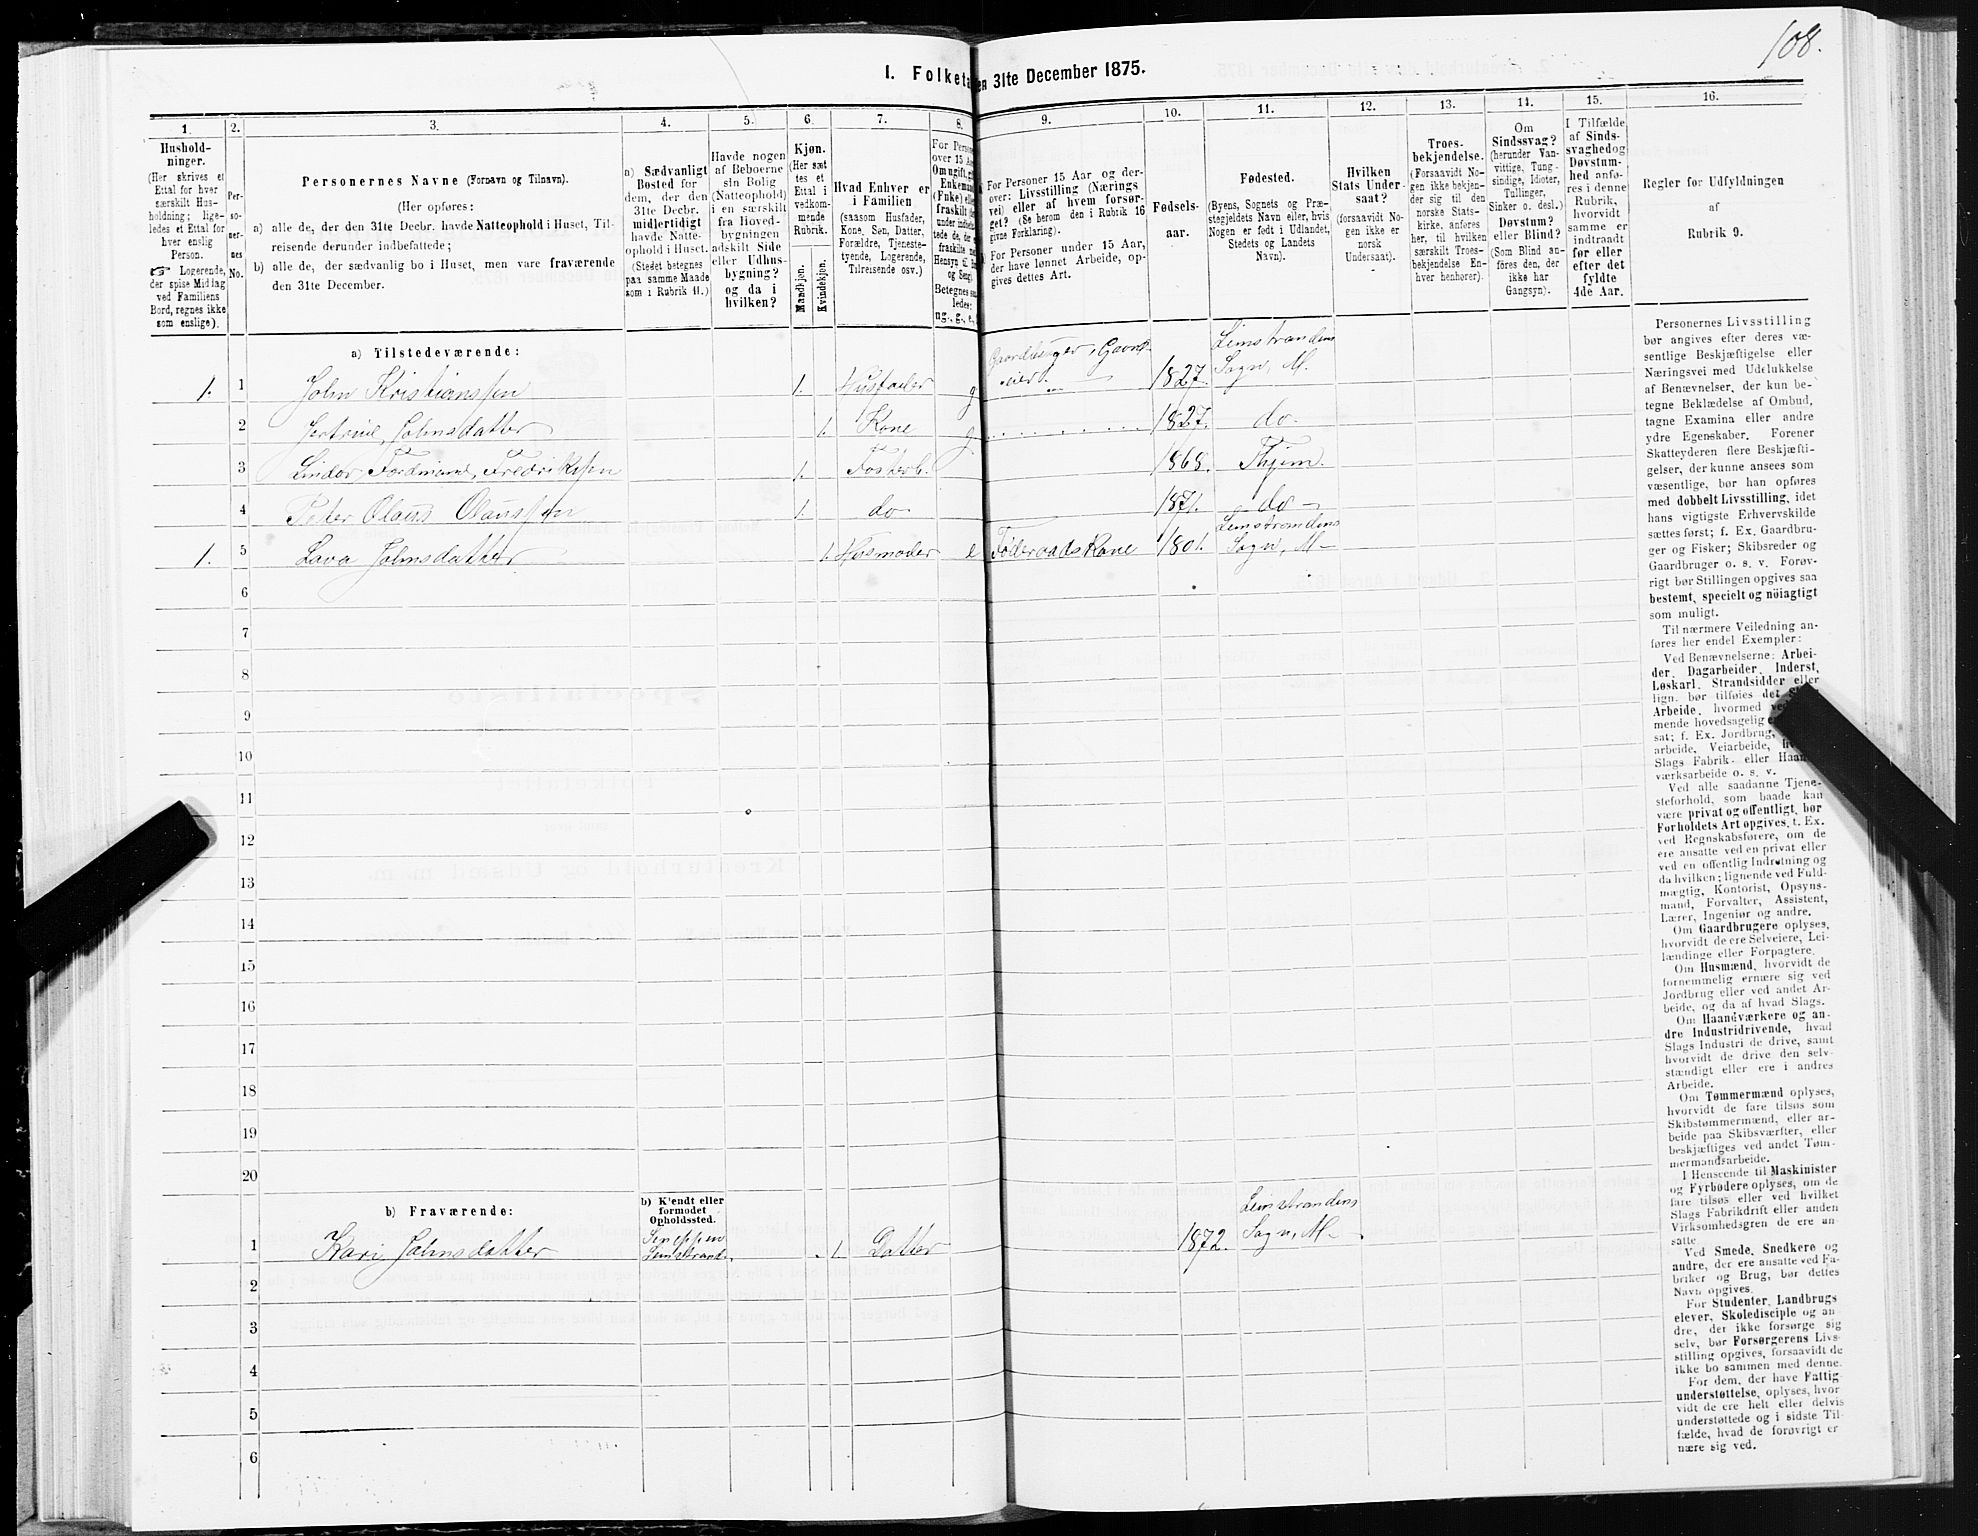 108.
I. Folketa en 31te December 1875.
1. 2. 3. 4. 5. 6. 7. 8. 9. 10. 11. 12. 13. 14. 15. 16.
Hushold-
ninger.
(Her skrives et
Ettal for hver
særskilt Hus-
holdning; lige-
ledes et Ettal for
hver enslig
Person.
☞ Logerende,
der spise Middag
ved Familiens
Bord, regnes ikke
som enslige).
Per-
so-
ner-
nes
No.
Personernes Navne (Fornavn og Tilnavn).
(Her opføres:
a) alle de, der den 31te Decbr. havde Natteophold i Huset, Til-
reisende derunder indbefattede;
b) alle de, der sædvanlig bo i Huset, men vare fraværende
den 31te December.
a) Sædvanligt
Bosted for
dem, der den
31te Decbr.
midlertidigt
havde Natte-
ophold i Huset.
(Stedet betegnes
paa samme Maade
som i Rubrik 11.)
Havde nogen
af Beboerne
sin Bolig
(Natteophold)
i en særskilt
fra Hoved-
bygningen
adskilt Side
eller Udhus-
bygning?
og da i
hvilken?
Kjøn.
(Her sæt
tes et
Ettal i
vedkom-
mende
Rubrik.
Mandkjøn.
Kvindekjøn.
Hvad Enhver er
i Familien
(saasom Husfader,
Kone, Søn, Datter,
Forældre, Tjeneste-
tyende, Logerende,
Tilreisende osv.)
For Person
over 15 Aar
Om ugift, gi
Enkemand
(Enke) elle
fraskilt
under
tede de, der
fraskilte
Hensyn til B
og Seng)
Betegnes saa
ledes:
ug., g., e.,
For Personer 15 Aar og der-
over: Livsstilling (Nærings
vei) eller af hvem forsør-
get? (Se herom den i Rubrik 16
givne Forklaring).
For Personer under 15 Aar,
der have lønnet Arbeide, op-
gives dettes Art.
Fødsels-
aar.
Fødested.
(Byens, Sognets og Præ-
stegjeldets Navn eller, hvis
Nogen er født i Udlandet,
Stedets og Landets
Navn).
Hvilken
Stats Under-
saat?
(forsaavidt No-
gen ikke er
norsk
Undersaat).
Troes-
bekjendelse.
(Forsaavidt No-
gen ikke bekjen-
der sig til den
norske Stats-
kirke, anføres
her, til hvilken
særskilt Troes-
bekjendelse En-
hver henhører).
Om
Sindssvag?
(herunder Van-
vittige, Tung-
sindige, Idioter,
Tullinger,
Sinker o. desl.)
Døvstum?
eller Blind?
(Som Blind an-
føres den, der
ikke har
Gangsyn).
I Tilfælde
af Sinds-
svaghed og
Døvstum-
hed anfø-
res i denne
Rubrik,
hvorvidt
samme er
indtraadt
før eller
efter det
fyldte
4de Aar.
Regler for Udfyldningen
af
Rubrik 9.
a) Tilstedeværende:
1. 1 John Kristianssen 1. Husfader g Gaardbruger, Gaard-eier. 1827. Leinstrandens Sogn, M.
2 Jertrud Johnsdatter 1. Kone g 1827. do.
3 Lindor Ferdinand Fredrikssen 1. Fosterb. 1868. Thjem.
4 Peter Olaus Olaussen 1. do 1871. do
1. 5 Lava Johnsdatter 1. Husmoder e Føderaads Kone 1801. Leinstrandens Sogn, M.
6
7
8
9
10
11
12
13
14
15
16
17
18
19
20
b) Fraværende:
b) Kjendt eller
formodet
Opholdssted.
1 Kari Johnsdatter Leinstrand. 1. Datter 1872. Leinstrandens Sogn, M.
2
3
4
5
6
Personernes Livsstilling
bør angives efter deres væ-
sentlige Beskjæftigelse eller
Næringsvei med Udelukkelse
af Benævnelser, der kun be-
tegne Beklædelse af Ombud,
tagne Examina eller andre
ydre Egenskaber. Forener
Skatteyderen flere Beskjæfti-
gelser, der kunne ansees som
væsentlige, bør han opføres
med dobbelt Livsstilling, idet
hans vigtigste Erhvervskilde
sættes først; f. Ex. Gaardbru-
ger og Fisker; Skibsreder og
Gaardbruger o. s. v. Forøv-
rigt bør Stillingen opgives saa
bestemt, specielt og nöiagtigt
som muligt.
Til nærmere Veiledning an-
føres her endel Exempler:
Ved Benævnelserne: Arbei-
der, Dagarbeider, Inderst,
Løskarl, Strandsidder eller
lign. bør tilføies det
Arbeide, hvormed ved
mende hovedsagelig er
sat; f. Ex. Jordbrug,
arbeide, Veiarbeide, hv
Slags Fabrik- eller Haand-
værksarbeide o. s. v.
Ved alle saadanne Tjene-
steforhold, som baade kan
være privat og offentligt, bør
Forholdets Art opgives, t. Ex.
ved Regnskabsførere, om de
ere ansatte ved en privat eller
ved en offentlig Indretning og
da hvilken; lignende ved Fuld-
mægtig, Kontorist, Opsyns-
mand, Forvalter, Assistent,
Lærer, Ingeniør og andre.
Om Gaardbrugere oplyses,
hvorvidt de ere Selveiere, Lei-
lændinge eller Forpagtere.
Om Husmænd, hvorvidt de
fornemmelig ernære sig ved
Jordbrug eller ved andet Ar-
beide, og da af hvad Slags.
Om Haandværkere og an-
dre Industridrivende, hvad
Slags Industri de drive, samt
hvorvidt de drive den selv-
stændigt eller ere i andres
Arbeide.
Om Tømmermænd oplyses,
hvorvidt de fare tilsøs som
Skibstømmermænd, eller ar-
beide paa Skibsværfter, eller
beskjæftiges ved andet Tøm-
mermandsarbeide.
I Henseende til Maskinister
og Fyrbødere oplyses, om de
fare tilsøs eller ved hvilket
Slags Fabrikdrift eller anden
Virksomhedsgren de ere an-
satte.
Ved Smede, Snedkere og
andre, der ere ansatte ved Fa-
briker og Brug, bør dettes
Navn opgives.
For Studenter, Landbrugs
elever, Skoledisciple og an
dre, der ikke forsørge sig
selv, bør Forsørgerens Livs-
stilling opgives, forsaavidt de
ikke bo sammen med denne.
For dem, der have Fattig
understøttelse, oplyses, hvor
vidt de ere helt eller delvis
understøttede og i sidste Til-
fælde, hvad de forøvrigt er
nære sig ved.